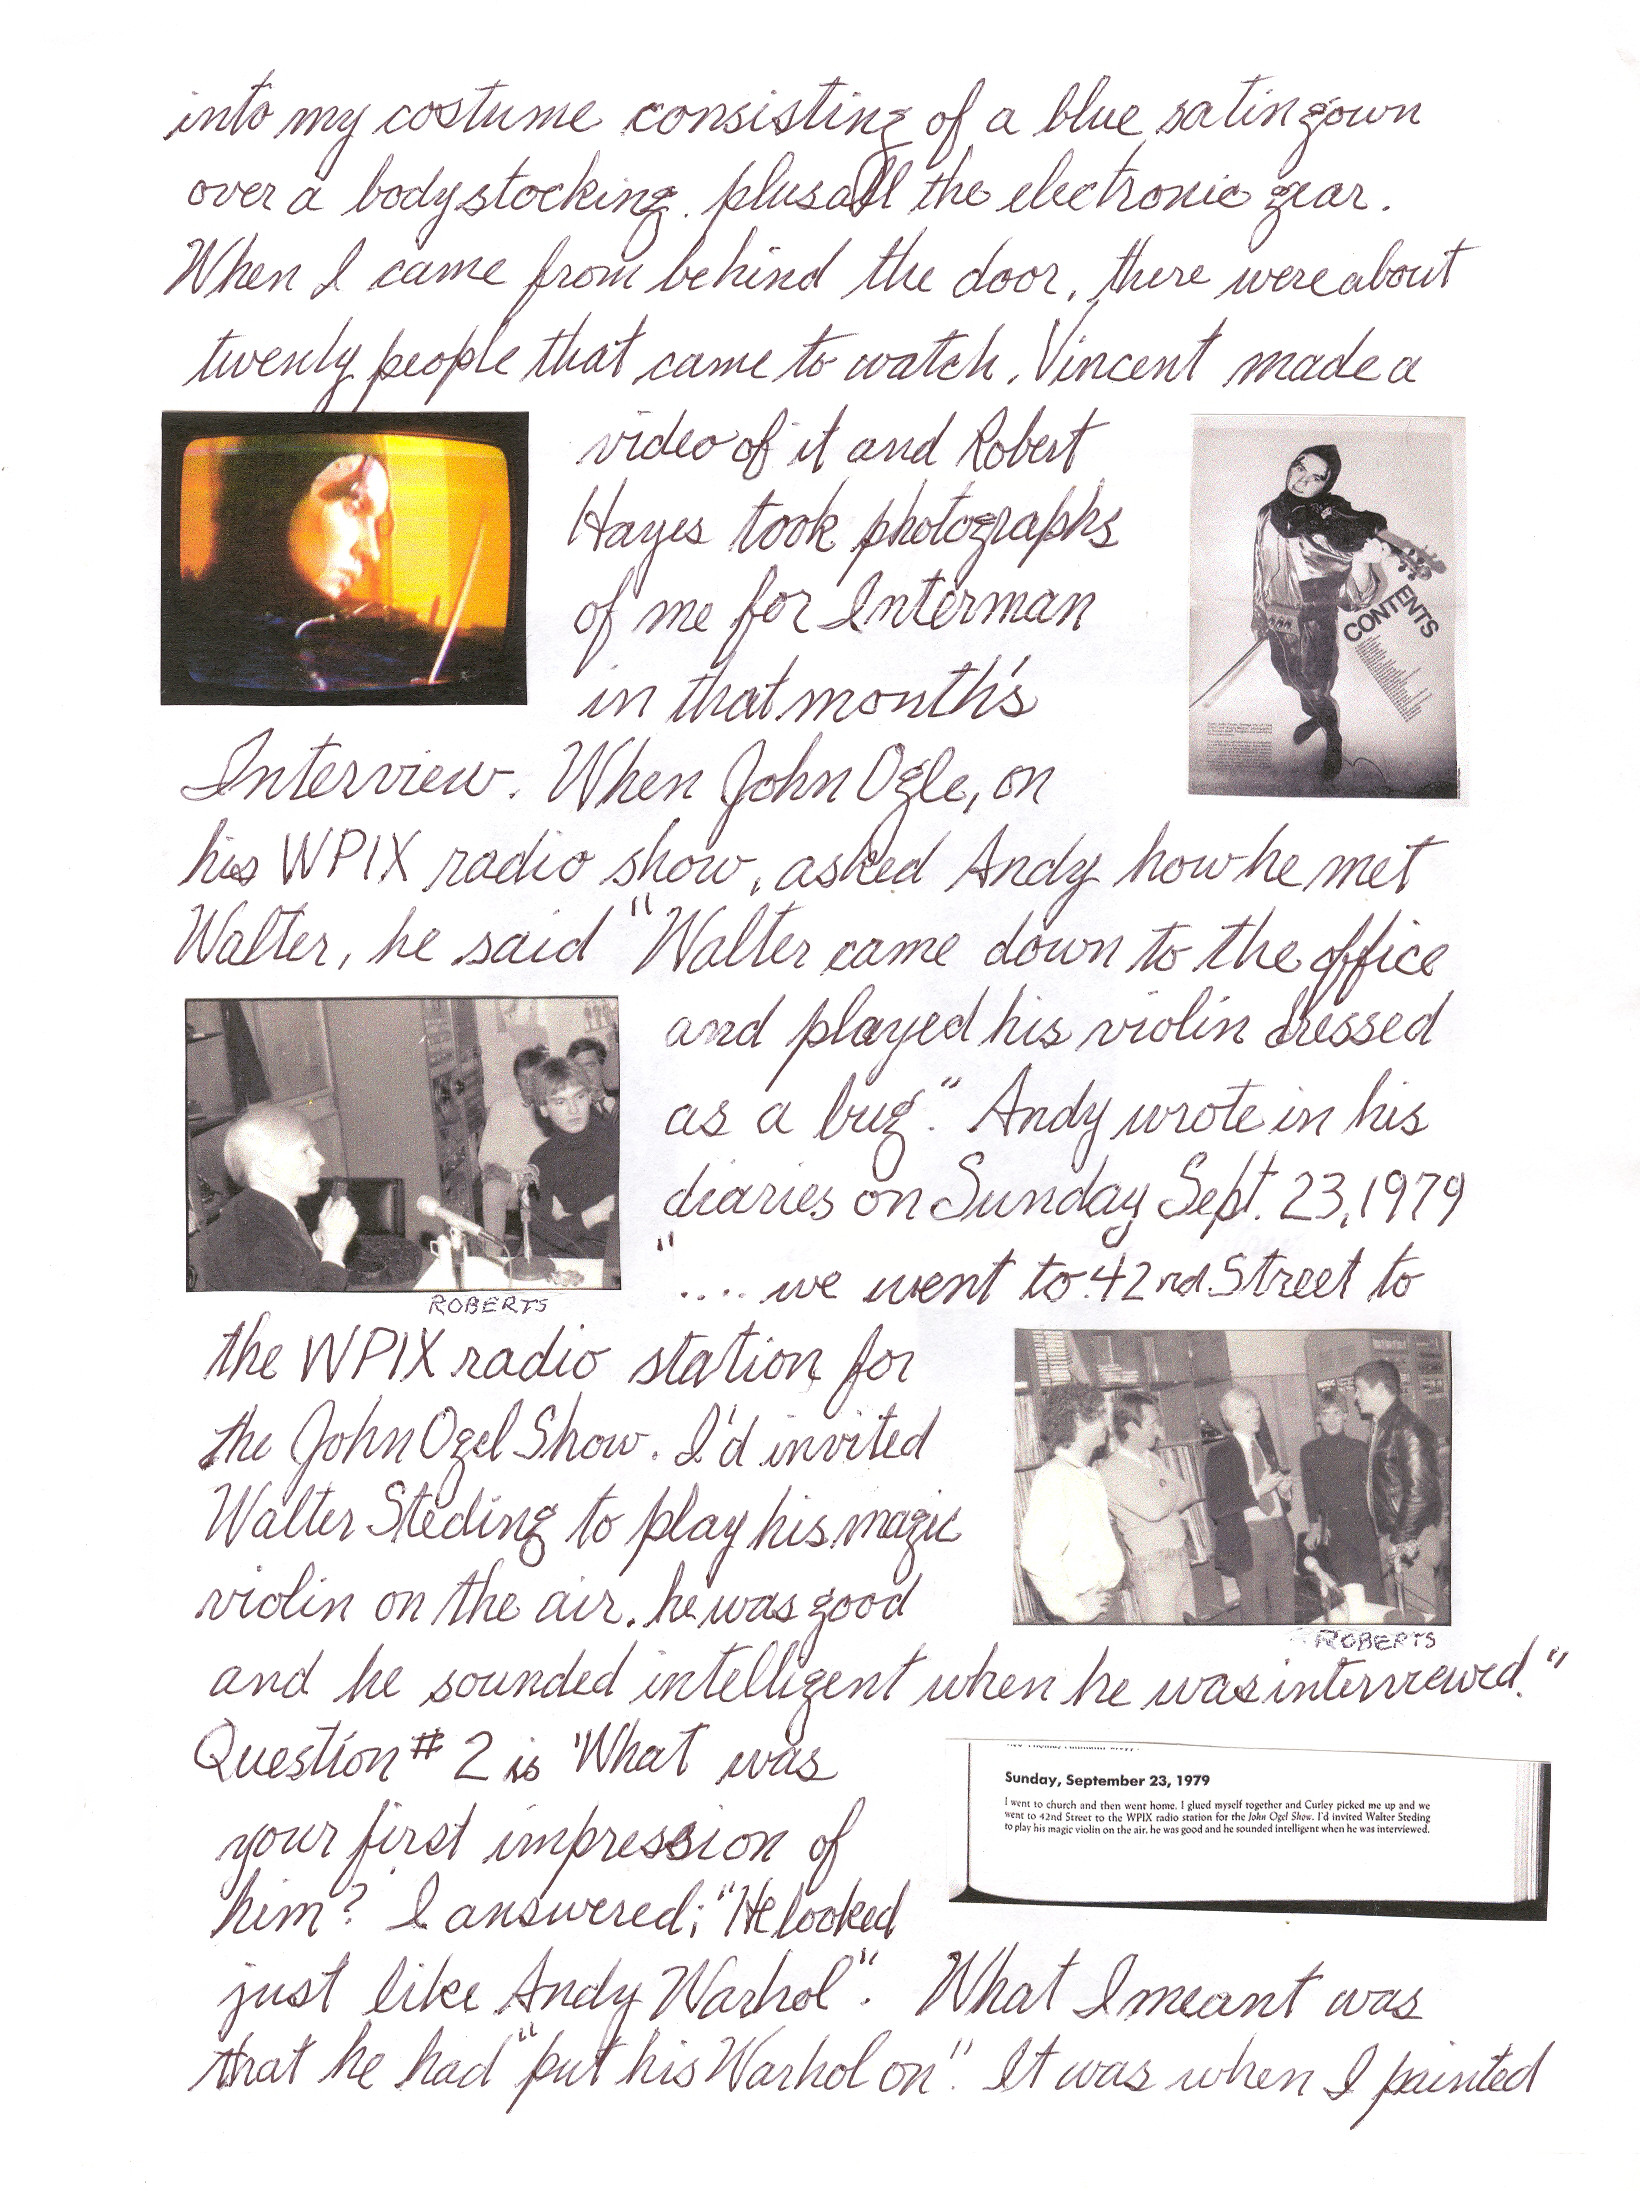 into my costume consisting of a blue satin gown
over a bodystocking. plus all the electronic gear.
When I came from behind the door, there were about
twenty people that came to watch. Vincent made a
video of it and Robert
Hayes took photographs
of me for Interman
in that month's
CONTENTS
Interview. When John Ogle, on
his WPIX radio show, asked Andy how he met
Walter, he said "Walter came down to the office
and played his violin dressed
as a bug." Andy wrote in his
diaries on Sunday Sept. 23, 1979
".... we went to 42nd Street to
ROBERTS
the WPIX radio station for
the John Ogel Show. I'd invited
Walter Steding to play his magic
violin on the air. he was good
ROBERTS
and he sounded intelligent when he was interviewed."
Question #2 is "What was
your first impression of
him? I answered; "He looked
just like Andy Warhol". What I meant was
that he had "put his Warhol on". It was when I painted
Sunday, September 23, 1979
I went to church and then went home. I glued myself together and Curley picked me up and we
went to 42nd Street to the WPIX radio station for the John Ogel Show. I'd invited Walter Steding
to play his magic violin on the air. he was good and he sounded intelligent when he was interviewed.